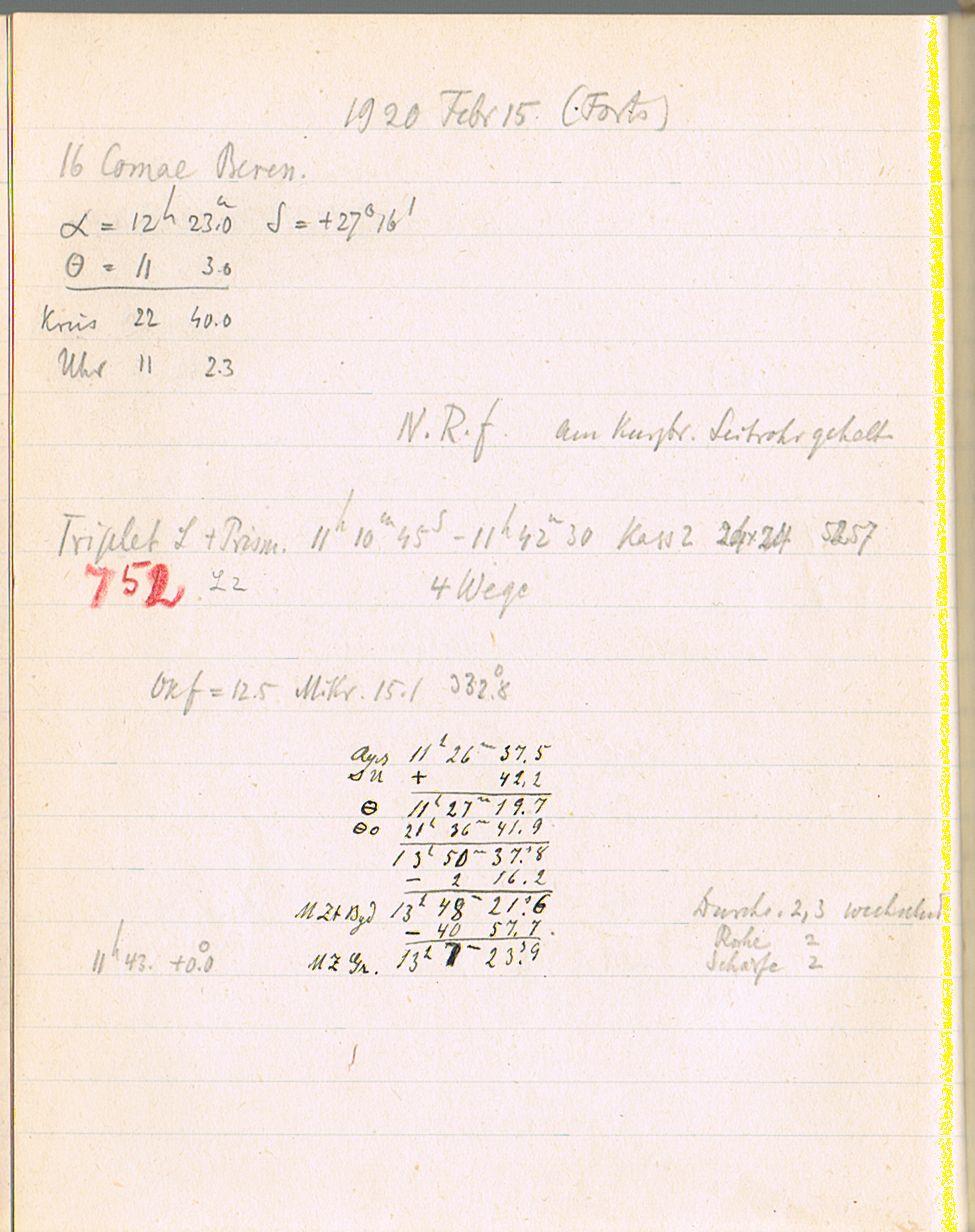 1920 Febr 15. (Forts)
16 Comae Beren.
α = 12h 23.0m δ = +27°16'
Θ = 11 3.0
Kreis 22 40.0
Uhr 11 2.3
N.R.f. am Kurzbr. Leitrohr gehalt
Triplet L + Prism. 11h 10m 45s - 11h 42m 30 Kass 2 24x24 5257
752 L2 4 Wege
Okf = 12.5 Mikr. 15.1 332°.8
11h 26m 37.5
+ 42,2
Θ 11h 27m 19.7
Θo 21h 36m 41.9
13h 50m 37s.8
- 2 16.2
MZt Bgd 13h 48m 21s.6
- 40 57.7.
MZ Gr. 13h 7m 23s.9
11h 43. +0°.0
Durchs. 2,3 wechselnd
Ruhe 2
Schärfe 2